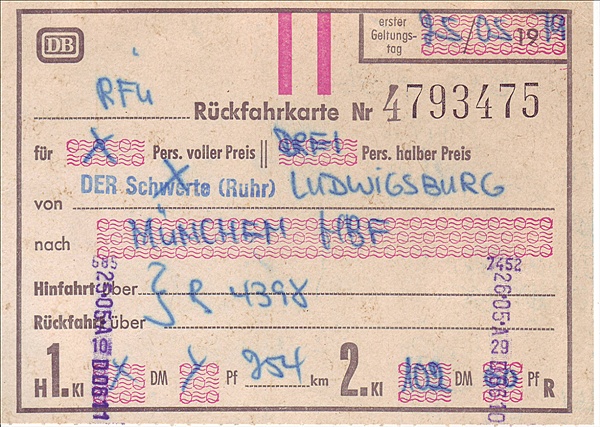 DB
erster Geltungs- tag 25/05 1979
RFü
Rückfahrkarte Nr 4793475
für X Pers. voller Preis || DREI Pers. halber Preis
DER Schwerte (Ruhr) LUDWIGSBURG
von
nach MÜNCHEN HBF
Hinfahrt über
R 4398
Rückfahrt über
H 1. Kl DM Pf 254 km 2. Kl 102 DM Pf R
7452
26·05·A
29